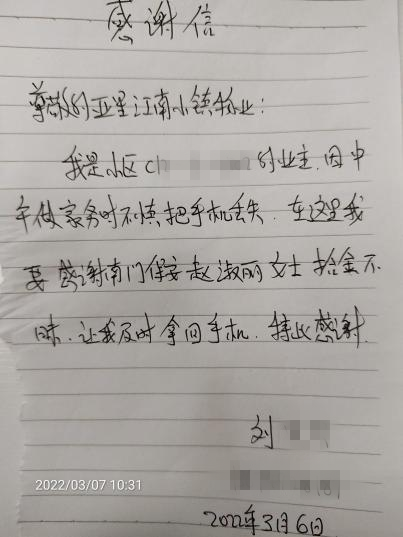 感谢信
尊敬的亚星江南小镇物业：
我是小区C 的业主，因中
午做家务时不慎把手机丢失，在这里我
要感谢南门保安赵淑丽女士拾金不
昧，让我及时拿回手机，特此感谢.
刘
2022/03/07 10:31
2022年3月6日